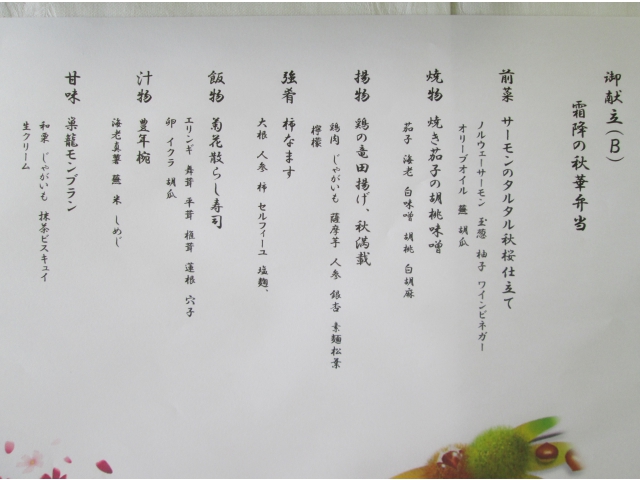 御献立(B)
霜降の秋華弁当
前菜 サーモンのタルタル秋桜仕立て
ノルウェーサーモン 玉葱 柚子 ワインビネガー
オリーブオイル 蕪 胡瓜
焼物 焼き茄子の胡桃味噌
茄子 海老 白味噌 胡桃 白胡麻
揚物 鶏の竜田揚げ、秋満載
鶏肉 じゃがいも 薩摩芋 人参 銀杏 素麺松葉
檸檬
強肴 柿なます
大根 人参 柿 セルフィーユ 塩麹、
飯物 菊花散らし寿司
エリンギ 舞茸 平茸 椎茸 蓮根 穴子
卵 イクラ 胡瓜
汁物 豊年椀
海老真薯 蕪 米 しめじ
甘味 巣籠モンブラン
和栗 じゃがいも 抹茶ビスキュイ
生クリーム